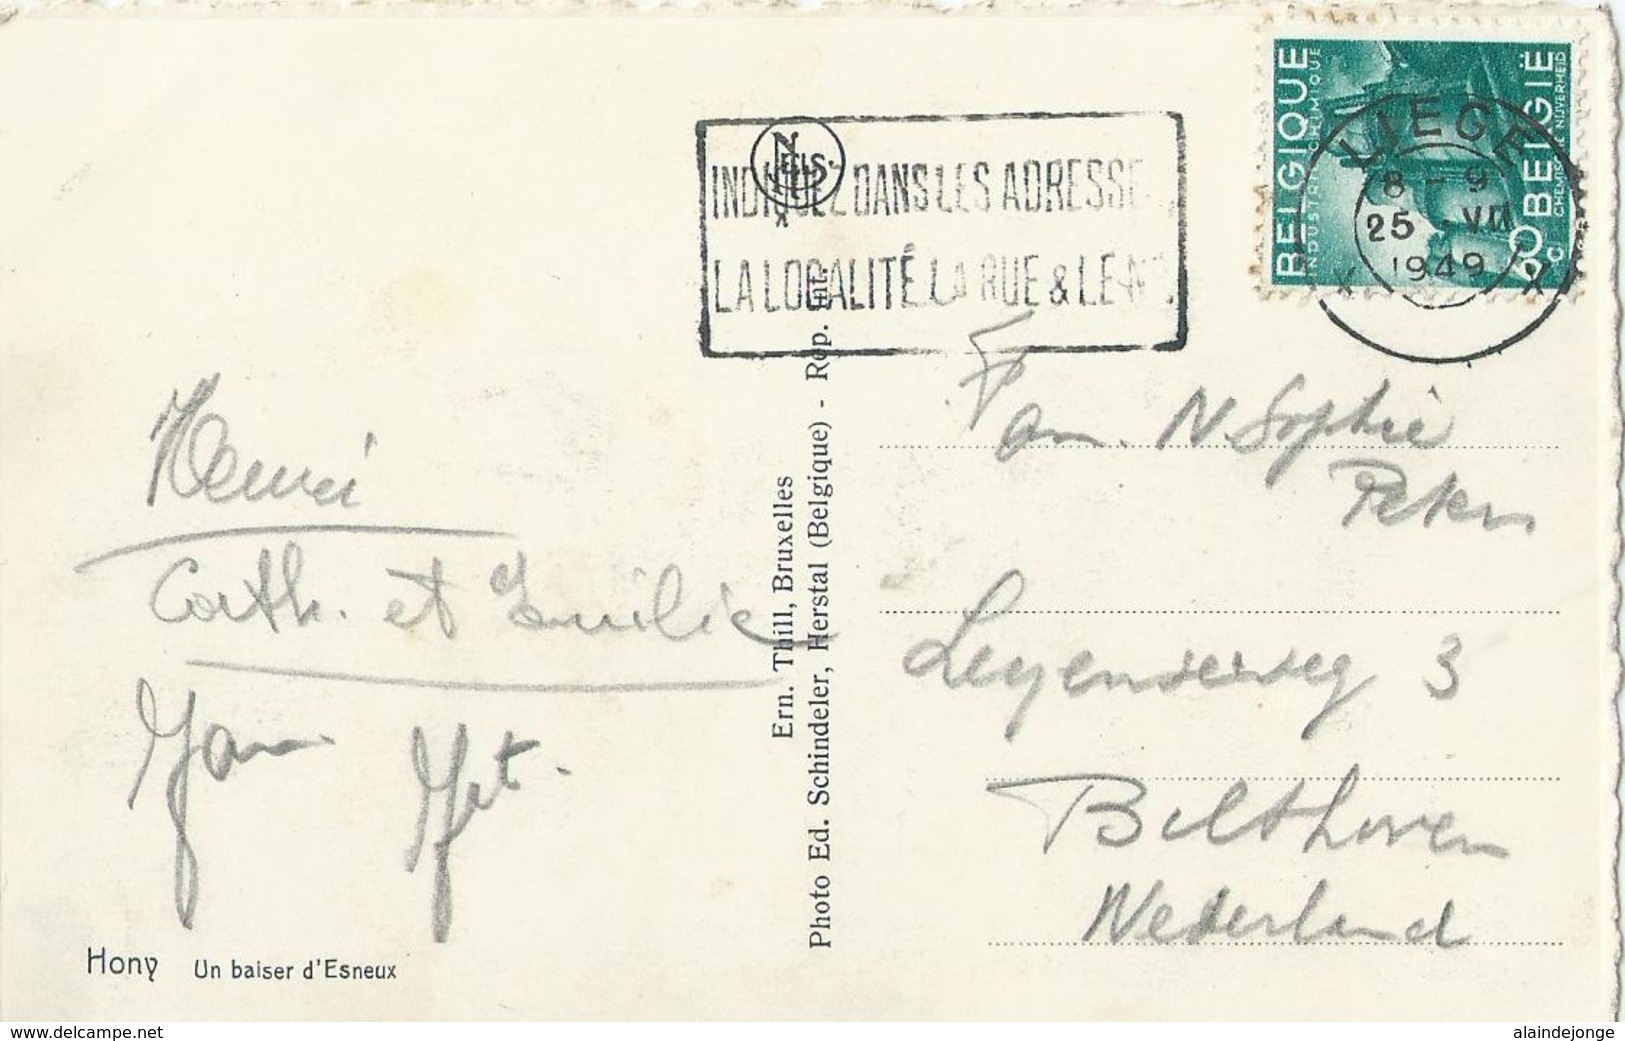 BELGIQUE
INDUSTRIE CHIMIQUE
BELGIË
CHEMISCHE NIJVERHEID
60 c
LIEGE
8 - 9
25 - VII
1949
NELS
INDIQUEZ DANS LES ADRESSES
LA LOCALITÉ, LA RUE & LE N°
Fam. N. Sophie
Peters
Leyenseweg 3
Bilthoven
Nederland
Henri
Cath. et Emilie
Jan
Ern. Thill, Bruxelles
Photo Ed. Schindeler, Herstal (Belgique) - Rep. int.
Hony Un baiser d'Esneux
www.delcampe.net
alaindejonge